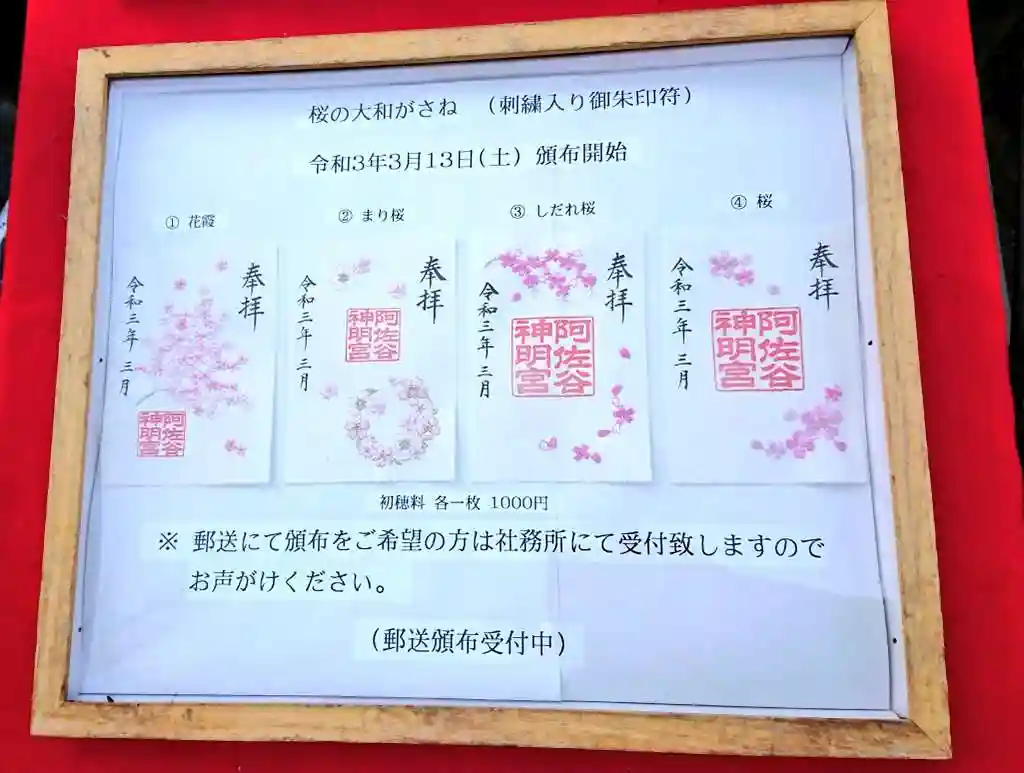 桜の大和がさね （刺繍入り御朱印符）
令和3年3月13日(土) 頒布開始
① 花霞
② まり桜
③ しだれ桜
④ 桜
奉拝
令和三年 三月
阿佐谷
神明宮
奉拝
令和三年 三月
阿佐谷
神明宮
奉拝
令和三年 三月
阿佐谷
神明宮
奉拝
令和三年 三月
阿佐谷
神明宮
初穂料 各一枚 1000円
※ 郵送にて頒布をご希望の方は社務所にて受付致しますので
お声がけください。
（郵送頒布受付中）